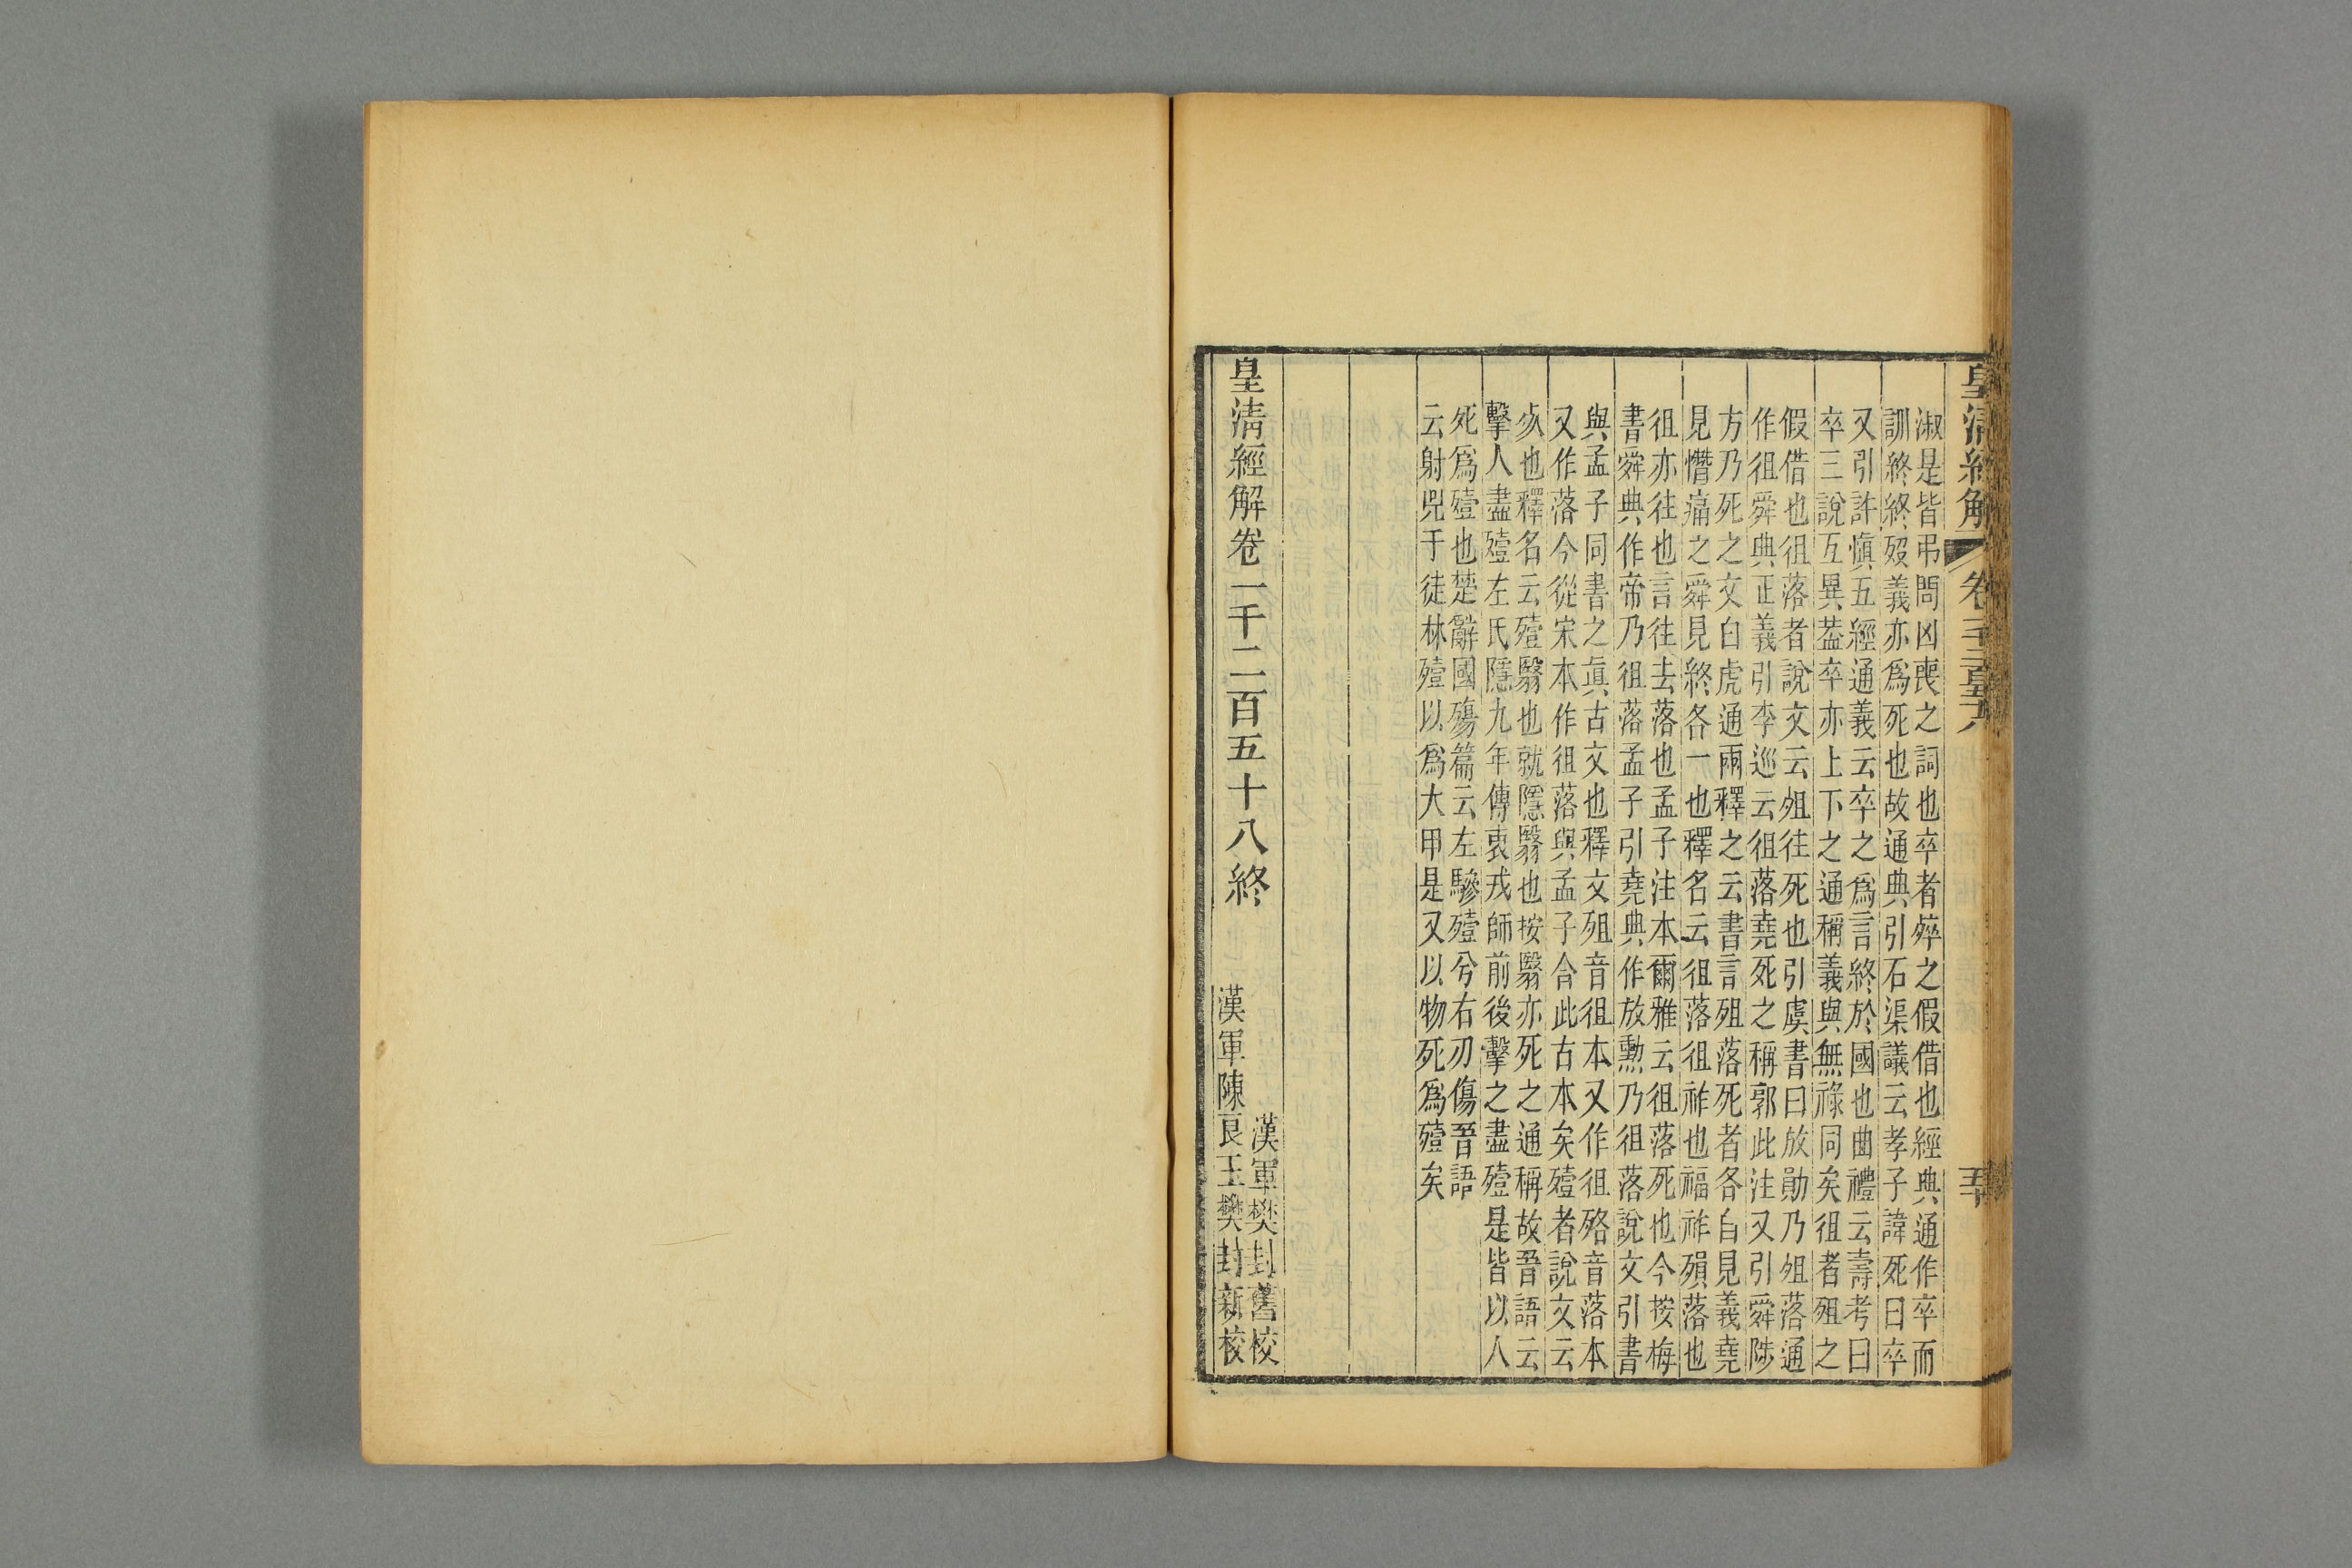 皇清經解
卷
淑是皆弔問凶喪之詞也卒者䘚之假借也經典通作卒而
訓終終歿義亦爲死也故通典引石渠議云孝子諱死曰卒
又引許愼五經通義云卒之爲言終於國也曲禮云壽考曰
卒三說互異葢卒亦上下之通稱義與無祿同矣徂者殂之
假借也徂落者說文云殂往死也引虞書曰放勛乃殂落通
作徂舜典正義引李巡云徂落堯死之稱郭此注又引舜陟
方乃死之文白虎通兩釋之云書言殂落死者各自見義堯
見憯痛之舜見終各一也釋名云徂落徂祚也福祚殞落也
徂亦往也言往去落也孟子注本爾雅云徂落死也今按梅
書舜典作帝乃徂落孟子引堯典作放勳乃徂落說文引書
與孟子同書之眞古文也釋文殂音徂本又作徂䂬音落本
又作落今從宋本作徂落與孟子合此古本矣殪者說文云
㱙也釋名云殪翳也就隱翳也按翳亦死之通稱故晉語云
擊人盡殪左氏隱九年傳衷戎師前後擊之盡殪是皆以人
死爲殪也楚辭國殤篇云左驂殪兮右刃傷晉語
云射兕于徒林殪以爲大甲是又以物死爲殪矣
皇清經解卷一千二百五十八終
漢軍樊封舊校
漢軍陳良玉樊封新校